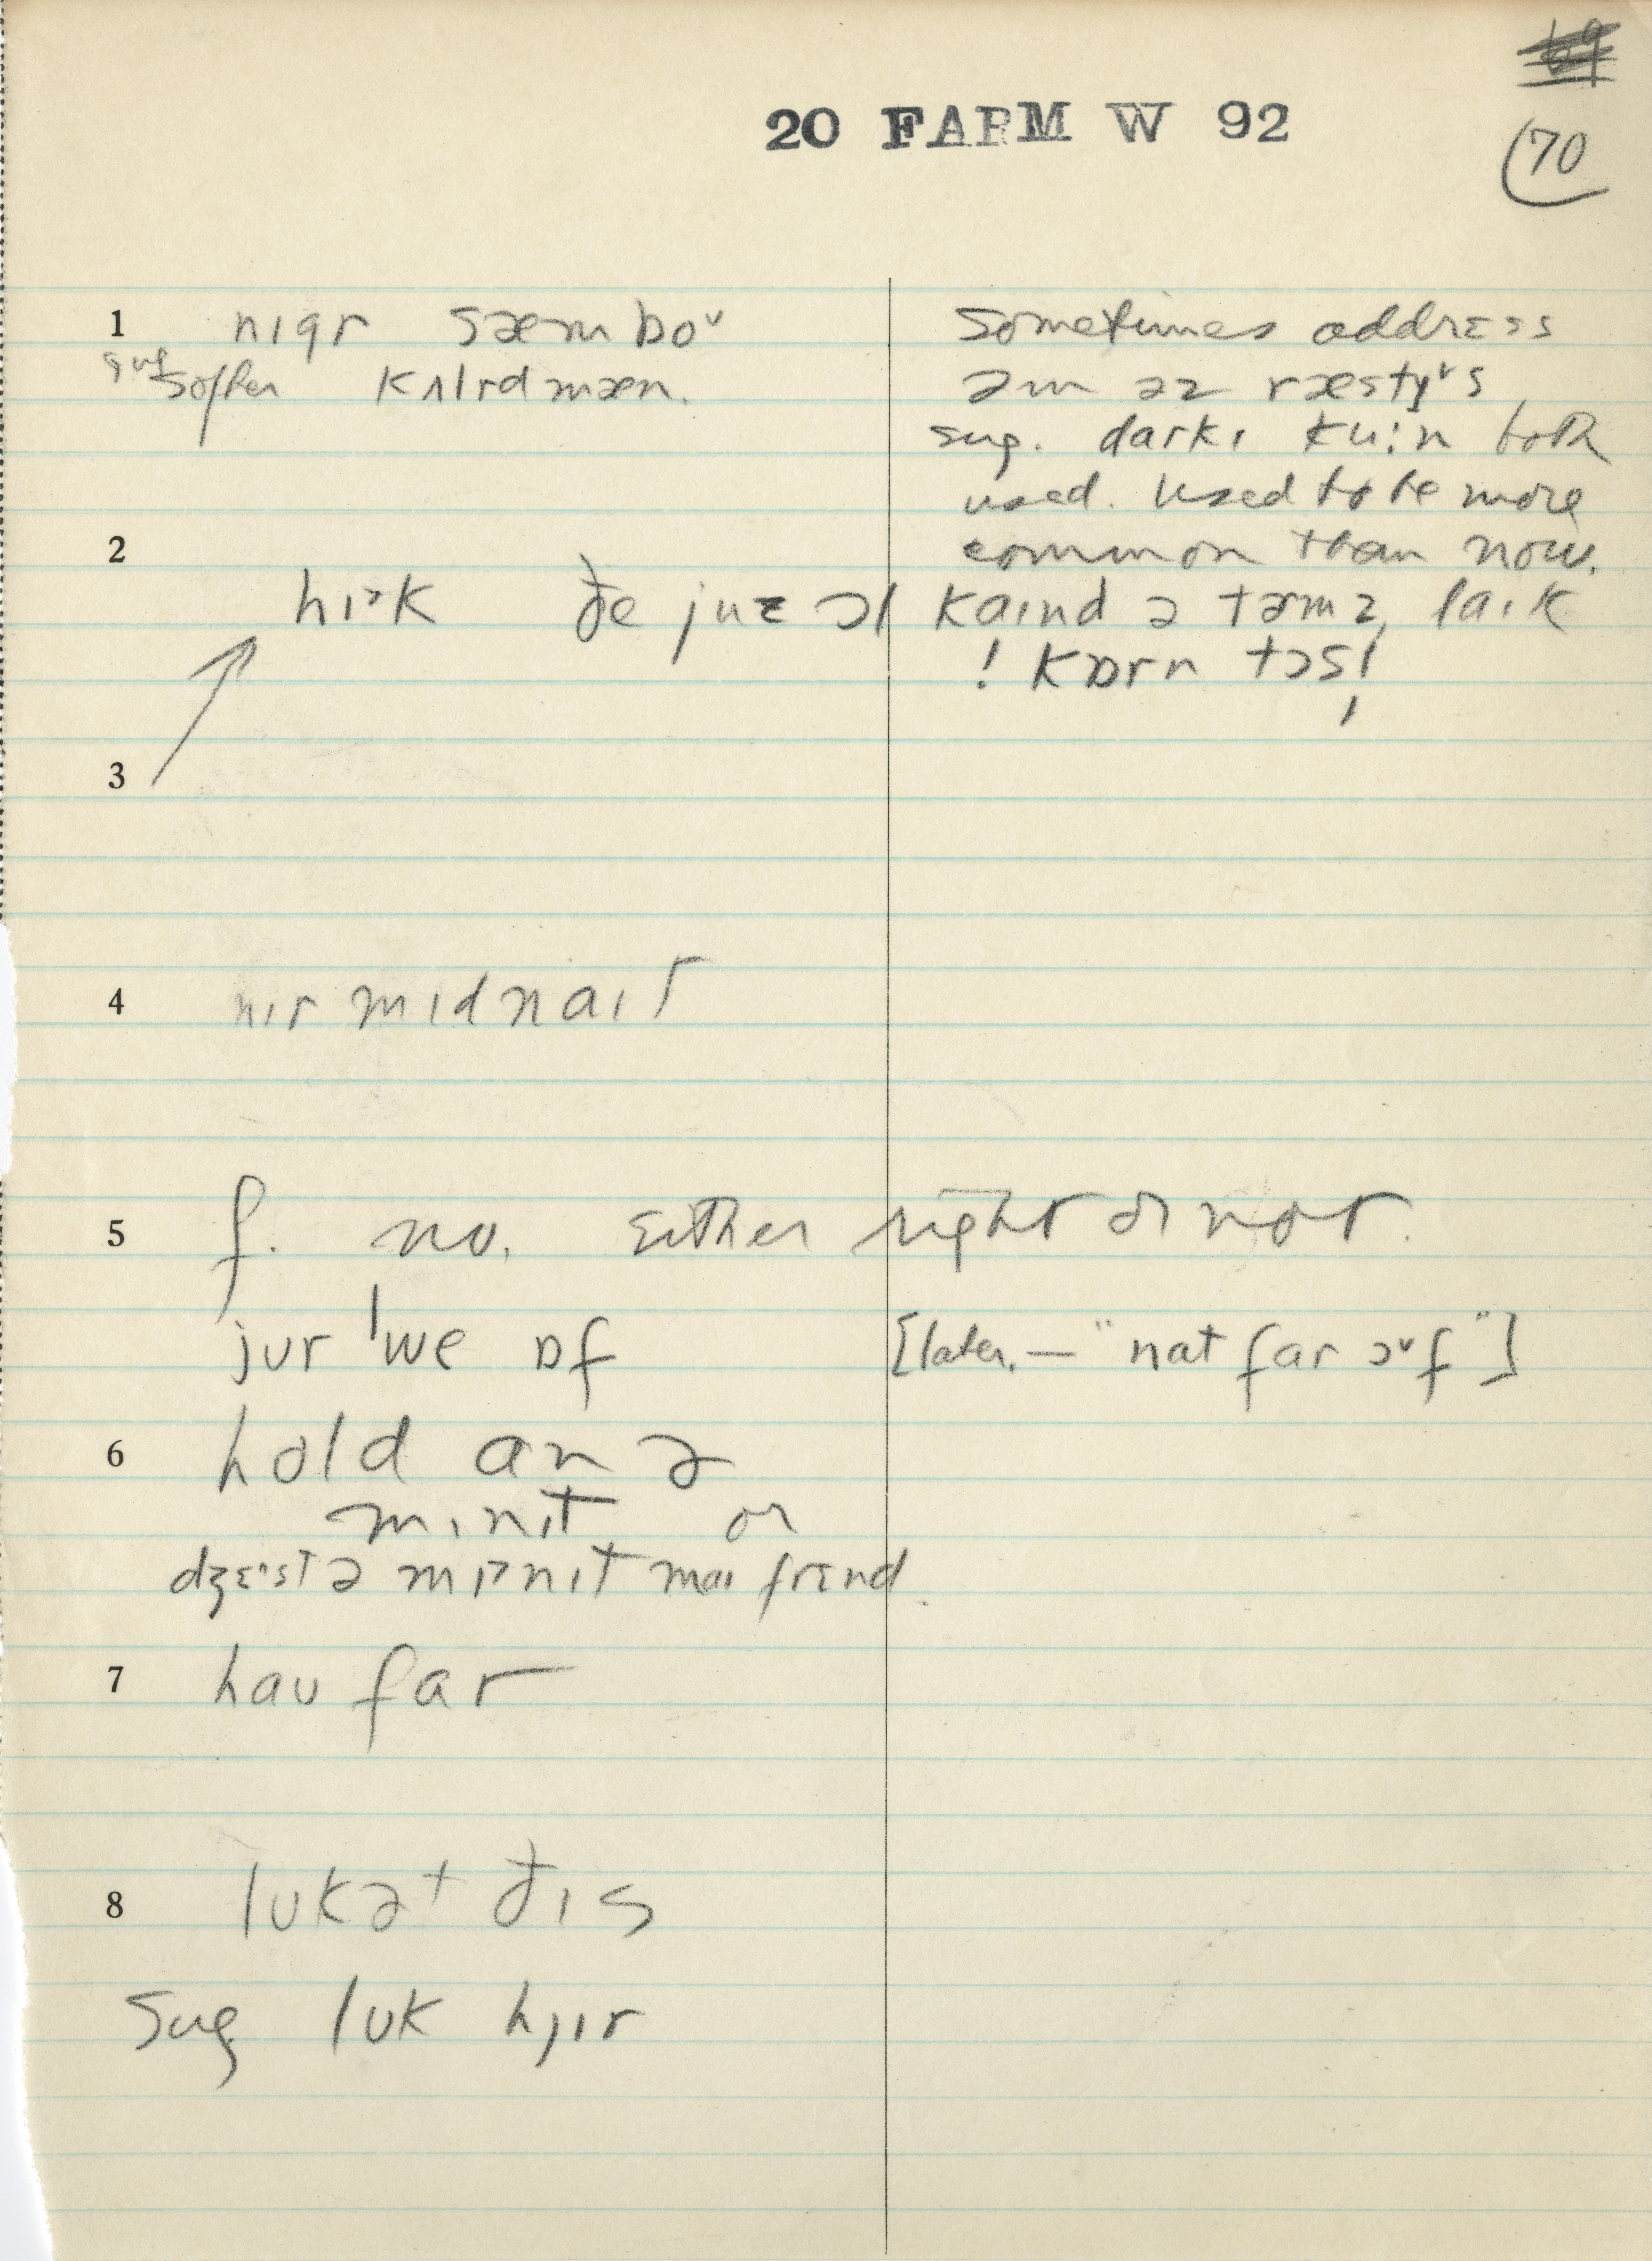 20 FARM W 92
70
1 nɪgr sæmboᵛ
softer kʌlrdmæn.
sometimes address
əm əz ræstyᵛs
sug. darkɪ ku:n both
used. Used to be more
common than now.
2
hɪᵊk ðe juz ɔl kaɪnd ə tərmz, laɪk
! kɒrn tɔsl
3
4 nɪr mɪdnaɪt
5 f. no. Either right or not.
jʊr ˈwe ɒf [later. — "nat far ɔᵛf"]
6 hold an ə
mɪnɪt or
ə mɪnɪt maɪ frɛnd.
7 haʊ far
8 lʊkət ðɪs
sug lʊk hjɪr